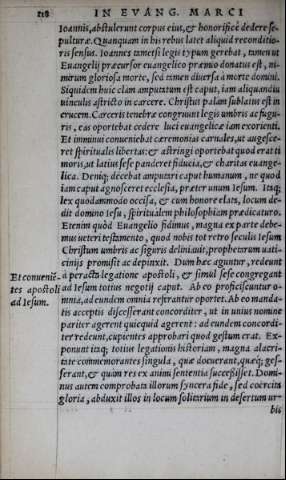 118 IN EVANG. MARCI
Ioannis, abstulerunt corpus eius, & honorificè dedere se-
pulturæ. Quanquam in his rebus latet aliquid reconditio-
ris sensus. Ioannes tametsi legis typum gerebat, tamen ut
Euangelij præcursor euangelico præmio donatus est, ni-
mirum gloriosa morte, sed tamen diuersa à morte domini.
Siquidem huic clam amputatum est caput, iam aliquandiu
uinculis astricto in carcere. Christus palam sublatus est in
crucem. Carceris tenebræ congruunt legis umbris ac figu-
ris, eas oportebat cedere luci euangelicæ iam exorienti.
Et imminui conueniebat ceremonias carnales, ut augesce-
ret spiritualis libertas: & astringi oportebat quod erat ti
moris, ut latius sese panderet fiducia, & charitas euange-
lica. Deniq; decebat amputari caput humanum, ne quod
iam caput agnosceret ecclesia, præter unum Iesum. Itaq;
lex quodammodo occisa, & cum honore elata, locum de-
dit domino Iesu, spiritualem philosophiam prædicaturo.
Etenim quòd Euangelio fidimus, magna ex parte debe-
mus ueteri testamento, quod nobis tot retro seculis Iesum
Christum umbris ac figuris deliniauit, prophetarum uati-
cinijs promisit ac depinxit. Dum hæc aguntur, redeunt
à peracta legatione apostoli, & simul sese congregant
ad Iesum totius negotij caput. Ab eo proficiscuntur o-
mnia, ad eundem omnia referantur oportet. Ab eo manda-
tis acceptis discesserant concorditer, ut in unius nomine
pariter agerent quicquid agerent: ad eundem concordi-
ter redeunt, cupientes approbari quod gestum erat. Ex-
ponunt itaq; totius legationis historiam, magna alacri-
tate commemorantes singula, quæ docuerant, quæq; ges-
serant, & quàm res ex animi sententia successisset. Domi-
nus autem comprobata illorum syncera fide, sed coërcita
gloria, abduxit illos in locum solitarium in desertum ur-
bis
Et conueniē-
tes apostoli
ad Iesum.